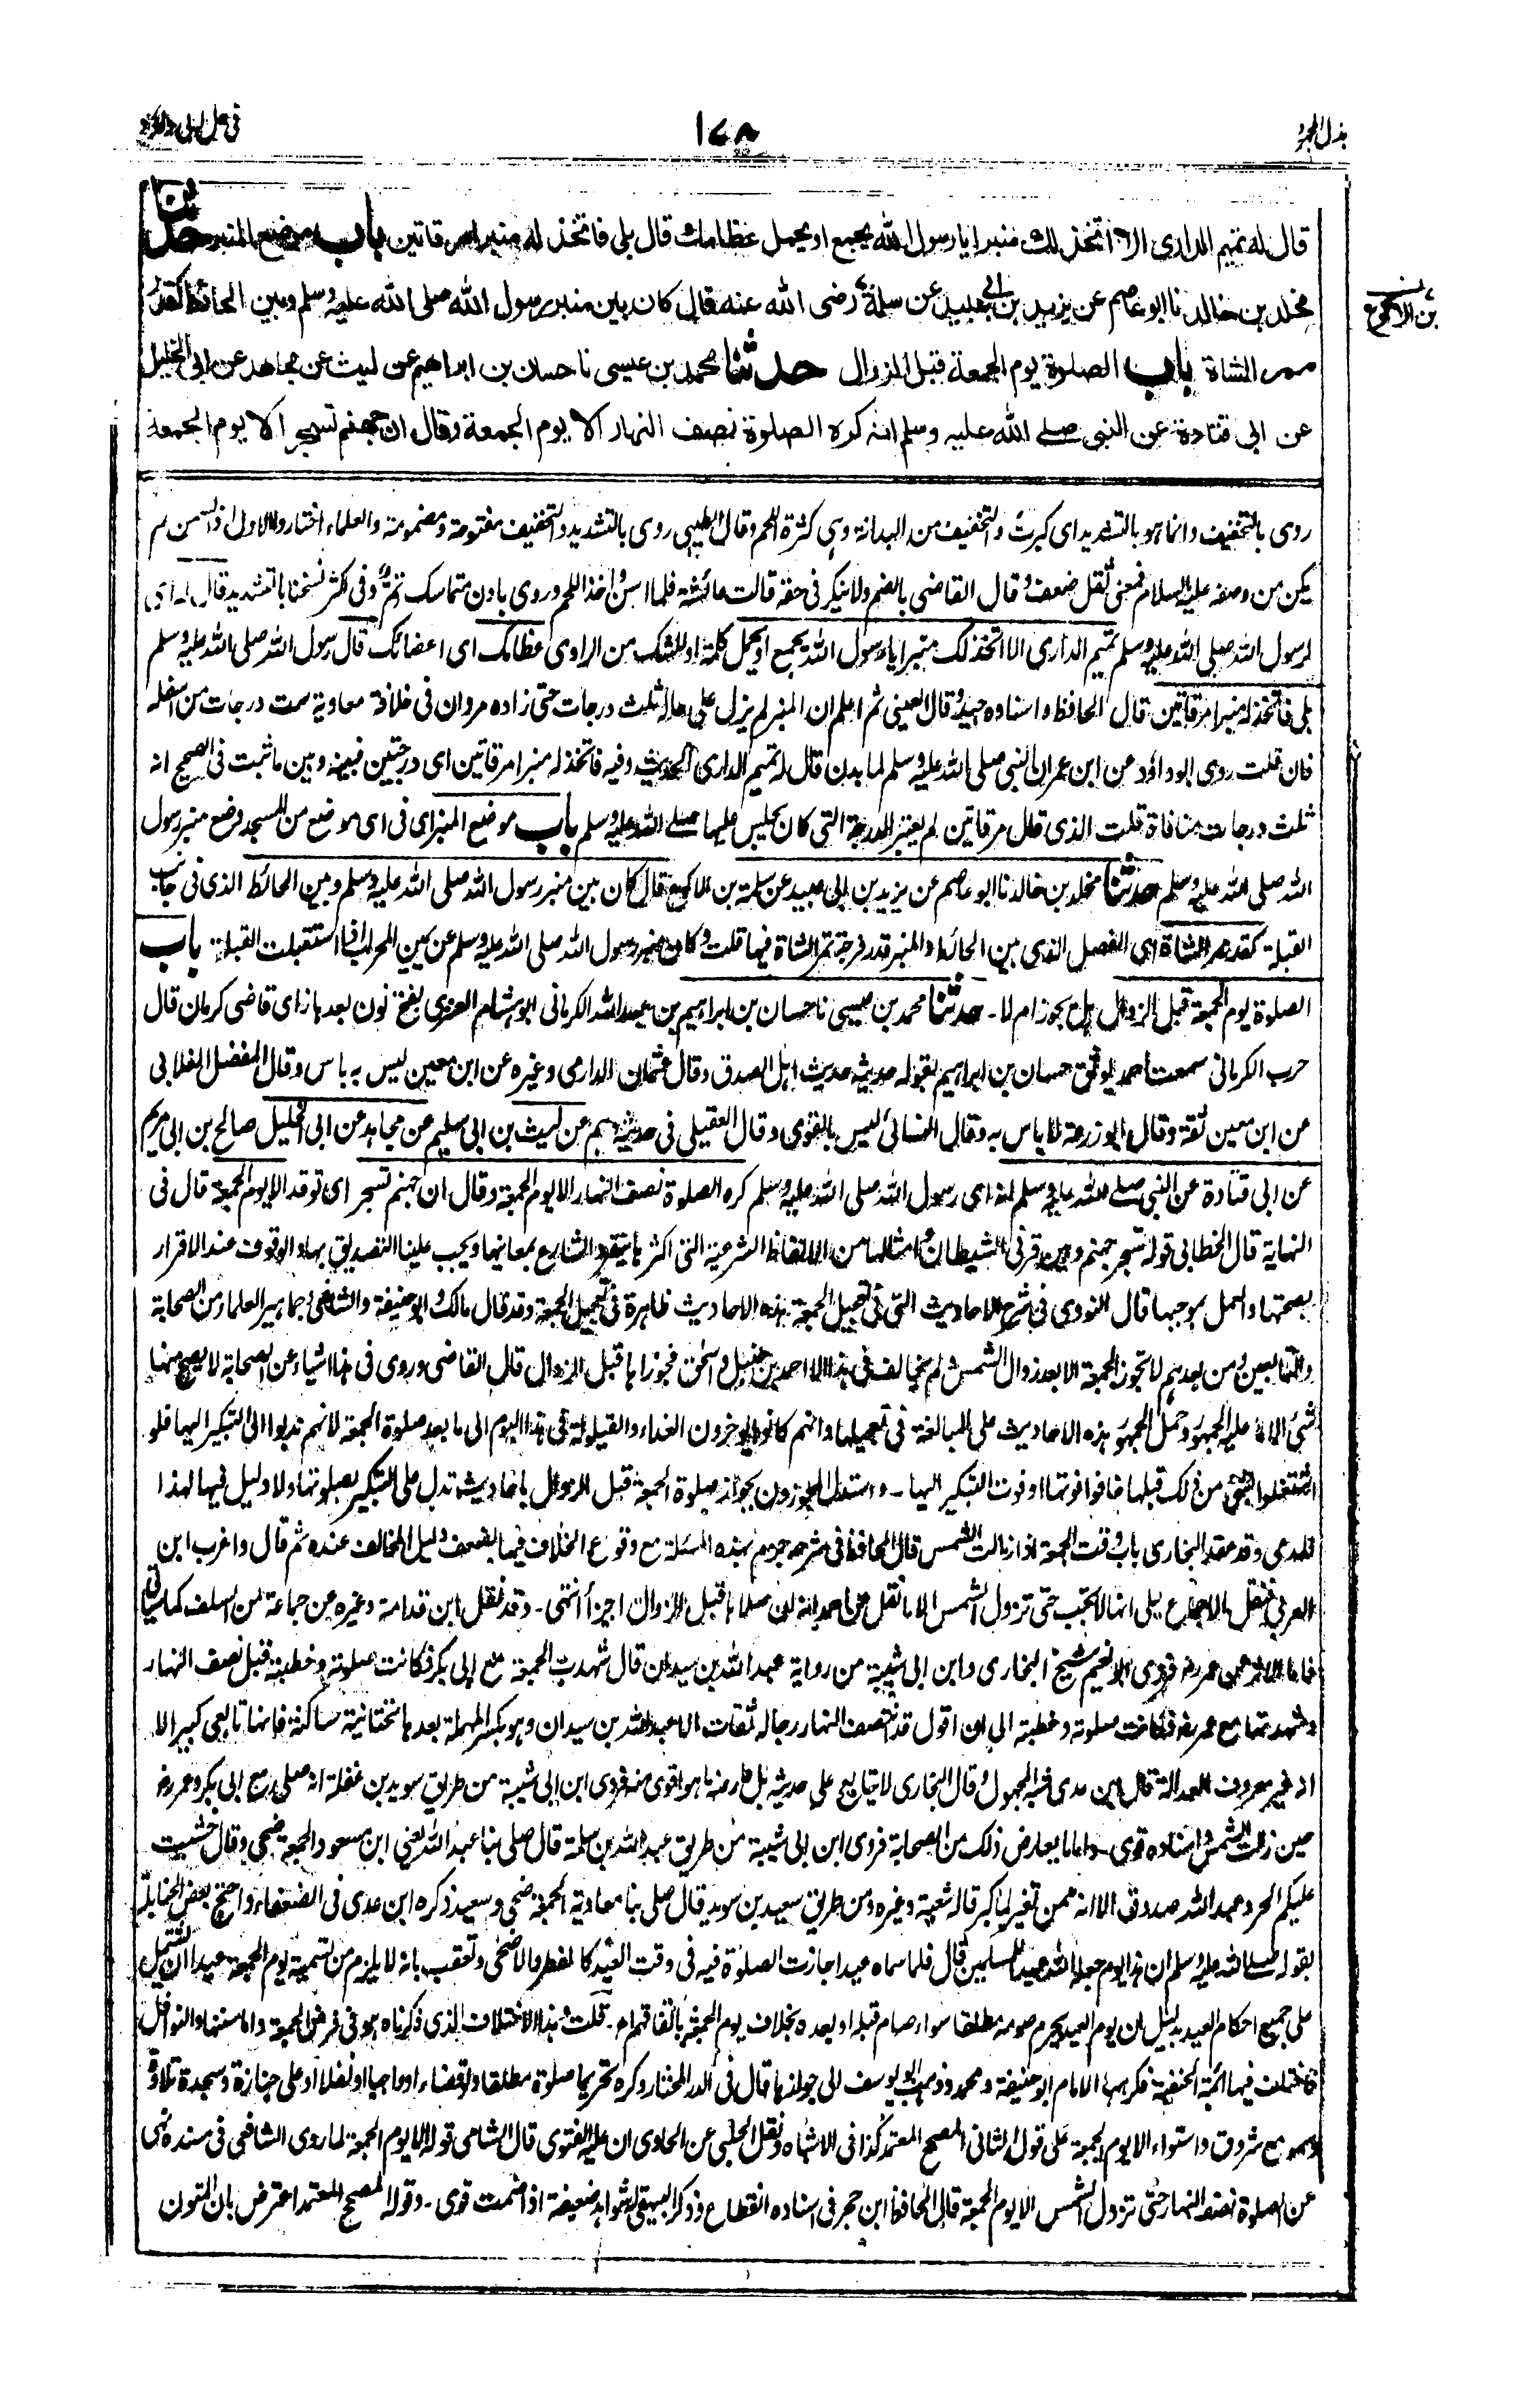 بذل المجهود
١٧٨
فى حل ابى داؤد
قال له تميم الدارى الا اتخذ لك منبرا يا رسول الله يجمع او يحمل عظامك قال بلى فاتخذ له منبرا مرقاتين باب موضع المنبر حدثنا
مخلد بن خالد نا ابو عاصم عن يزيد بن ابى عبيد عن سلمة رضى الله عنه قال كان بين منبر رسول الله صلى الله عليه وسلم وبين الحائط كقدر
بن الاكوع
ممر الشاة باب الصلوة يوم الجمعة قبل الزوال حدثنا محمد بن عيسى نا حسان بن ابراهيم عن ليث عن مجاهد عن ابى الخليل
عن ابى قتادة عن النبى صلے الله عليه وسلم انه كره الصلوة نصف النهار الا يوم الجمعة وقال ان جهنم تسجر الا يوم الجمعة
روى بالتخفيف وانما هو بالتشديد اى كبرت والتخفيف من البدانة وهى كثرة اللحم وقال الطيبى روى بالتشديد والتخفيف مفتوحة ومضمومة والعلماء اختاروا الاول اذ السمن لم
يكن من وصفه عليه السلام فمعنى ثقل ضعف وقال القاضى بالضم ولا ينكر فى حقه قالت عائشة فلما اسن واخذ اللحم وروى بادن متماسك وفى اكثر نسخنا بالتشديد قال له اى
لرسول الله صلى الله عليه وسلم تميم الدارى الا اتخذ لك منبرا يا رسول الله يجمع او يحمل كلمة او للشك من الراوى عظامك اى اعضائك قال رسول الله صلى الله عليه وسلم
بلى فاتخذ له منبرا مرقاتين قال الحافظ واسناده جيد وقال العينى ثم اعلم ان المنبر لم يزل على حاله ثلث درجات حتى زاده مروان فى خلافة معاوية ست درجات من اسفله
فان قلت روى ابو داؤد عن ابن عمر ان النبى صلى الله عليه وسلم لما بدن قال له تميم الدارى الحديث وفيه فاتخذ له منبرا مرقاتين اى درجتين فبينه وبين ما ثبت فى الصحيح انه
ثلث درجات منافاة قلت الذى قال مرقاتين لم يعتبر الدرجة التى كان يجلس عليها صلے الله عليه وسلم باب موضع المنبر اى فى اى موضع من المسجد وضع منبر رسول
الله صلى الله عليه وسلم حدثنا مخلد بن خالد نا ابو عاصم عن يزيد بن ابى عبيد عن سلمة بن الاكوع قال كان بين منبر رسول الله صلى الله عليه وسلم وبين الحائط الذى فى جانب
القبلة كقدر ممر الشاة اى الفصل الذى بين الحائط والمنبر قدر فرجة تمر الشاة فيها قلت وكان منبر رسول الله صلى الله عليه وسلم عن يمين المحراب اذا استقبلت القبلة باب
الصلوة يوم الجمعة قبل الزوال هل يجوز ام لا۔ حدثنا محمد بن عيسى نا حسان بن ابراهيم بن عبد الله الكرمانى ابو هشام العنزى بفتح نون بعدها زاى قاضى كرمان قال
حرب الكرمانى سمعت احمد يوثق حسان بن ابراهيم بقوله حديثه حديث اهل الصدق وقال عثمان الدارمى وغيره عن ابن معين ليس به باس وقال المفضل الغلابى
عن ابن معين ثقة وقال ابو زرعة لا باس به وقال النسائى ليس بالقوى وقال العقيلى فى حديثه وهم عن ليث بن ابى سليم عن مجاهد عن ابى الخليل صالح بن ابى مريم
عن ابى قتادة عن النبى صلے الله عليه وسلم انه اى رسول الله صلى الله عليه وسلم كره الصلوة نصف النهار الا يوم الجمعة وقال ان جهنم تسجر اى توقد الا يوم الجمعة قال فى
النهاية قال الخطابى قوله تسجر جهنم وبين قرنى الشيطان وامثالها من الالفاظ الشرعية التى اكثرها ينفرد الشارع بمعانيها ويجب علينا التصديق بها والوقوف عند الاقرار
بصحتها والعمل بموجبها قال النووى فى شرح الاحاديث التى فى تعجيل الجمعة هذه الاحاديث ظاهرة فى تعجيل الجمعة وقد قال مالك وابو حنيفة والشافعى وجماهير العلماء من الصحابة
والتابعين ومن بعدهم لا تجوز الجمعة الا بعد زوال الشمس ولم يخالف فى هذا الا احمد بن حنبل واسحق فجوزاها قبل الزوال قال القاضى وروى فى هذا اشياء عن الصحابة لا يصح منها
شئ الا ما عليه الجمهور وحمل الجمهور هذه الاحاديث على المبالغة فى تعجيلها وانهم كانوا يوخرون الغداء والقيلولة فى هذا اليوم الى ما بعد صلوة الجمعة لانهم ندبوا الى التبكير اليها فلو
اشتغلوا بشئ من ذلك قبلها خافوا فوتها او فوت التبكير اليها۔ واستدل المجوزون بجواز صلوة الجمعة قبل الزوال باحاديث تدل على التبكير بصلوتها ولا دليل فيها لهذا
المدعى وقد عقد البخارى باب وقت الجمعة اذا زالت الشمس قال الحافظ فى شرحه جزم بهذه المسئلة مع وقوع الخلاف فيها لضعف دليل المخالف عنده ثم قال واغرب ابن
العربى فنقل الاجماع على انها لا تجب حتى تزول الشمس الا ما نقل عن احمد انه ان صلاها قبل الزوال اجزأ انتهى۔ وقد نقل ابن قدامة وغيره عن جماعة من السلف كما سيأتى
فاما الاثر عن عمر رض فروى ابو نعيم شيخ البخارى وابن ابى شيبة من رواية عبد الله بن سيدان قال شهدت الجمعة مع ابى بكر فكانت صلوته وخطبته قبل نصف النهار
وشهدتها مع عمر رض فكانت صلوته وخطبته الى ان اقول قد انتصف النهار رجاله ثقات الا عبد الله بن سيدان وهو بكسر المهملة بعدها تحتانية ساكنة فانه تابعى كبير الا
انه غير معروف العدالة قال ابن عدى شبه المجهول وقال البخارى لا يتابع على حديثه بل عارضه ما هو اقوى منه فروى ابن ابى شيبة من طريق سويد بن غفلة انه صلى مع ابى بكر وعمر رض
حين زالت الشمس واسناده قوى۔ واما ما يعارض ذلك من الصحابة فروى ابن ابى شيبة من طريق عبد الله بن سلمة قال صلى بنا عبد الله يعنى ابن مسعود الجمعة ضحى وقال خشيت
عليكم الحر وعبد الله صدوق الا انه ممن تغير لما كبر قاله شعبة وغيره ومن طريق سعيد بن سويد قال صلى بنا معاوية الجمعة ضحى وسعيد ذكره ابن عدى فى الضعفاء واحتج بعض الحنابلة
بقوله صلے الله عليه وسلم ان هذا يوم جعله الله عيدا للمسلمين قال فلما سماه عيدا جازت الصلوة فيه فى وقت العيد كالفطر والاضحى وتعقب بانه لا يلزم من تسمية يوم الجمعة عيدا ان يشتمل
على جميع احكام العيد بدليل ان يوم العيد يحرم صومه مطلقا سواء صام قبله او بعده بخلاف يوم الجمعة باتفاقهم اھ۔ قلت هذا الاختلاف الذى ذكرناه هو فى فرض الجمعة واما سننها والنوافل
فاختلف فيها ائمة الحنفية فكرهها الامام ابو حنيفة ومحمد وذهب ابو يوسف الى جوازها قال فى الدر المختار وكره تحريما صلوة مطلقا ولو قضاء او واجبا او نفلا او على جنازة وسجدة تلاوة
وسهو مع شروق واستواء الا يوم الجمعة على قول الثانى المصحح المعتمد كذا فى الاشباه ونقل الحلبى عن الحاوى ان عليه الفتوى قال الشامى قوله الا يوم الجمعة لما روى الشافعى فى مسنده نهى
عن الصلوة نصف النهار حتى تزول الشمس الا يوم الجمعة قال الحافظ ابن حجر فى اسناده انقطاع وذكر البيهقى له شواهد ضعيفة اذا ضمت قوى۔ وقوله المصحح المعتمد اعترض بان المتون